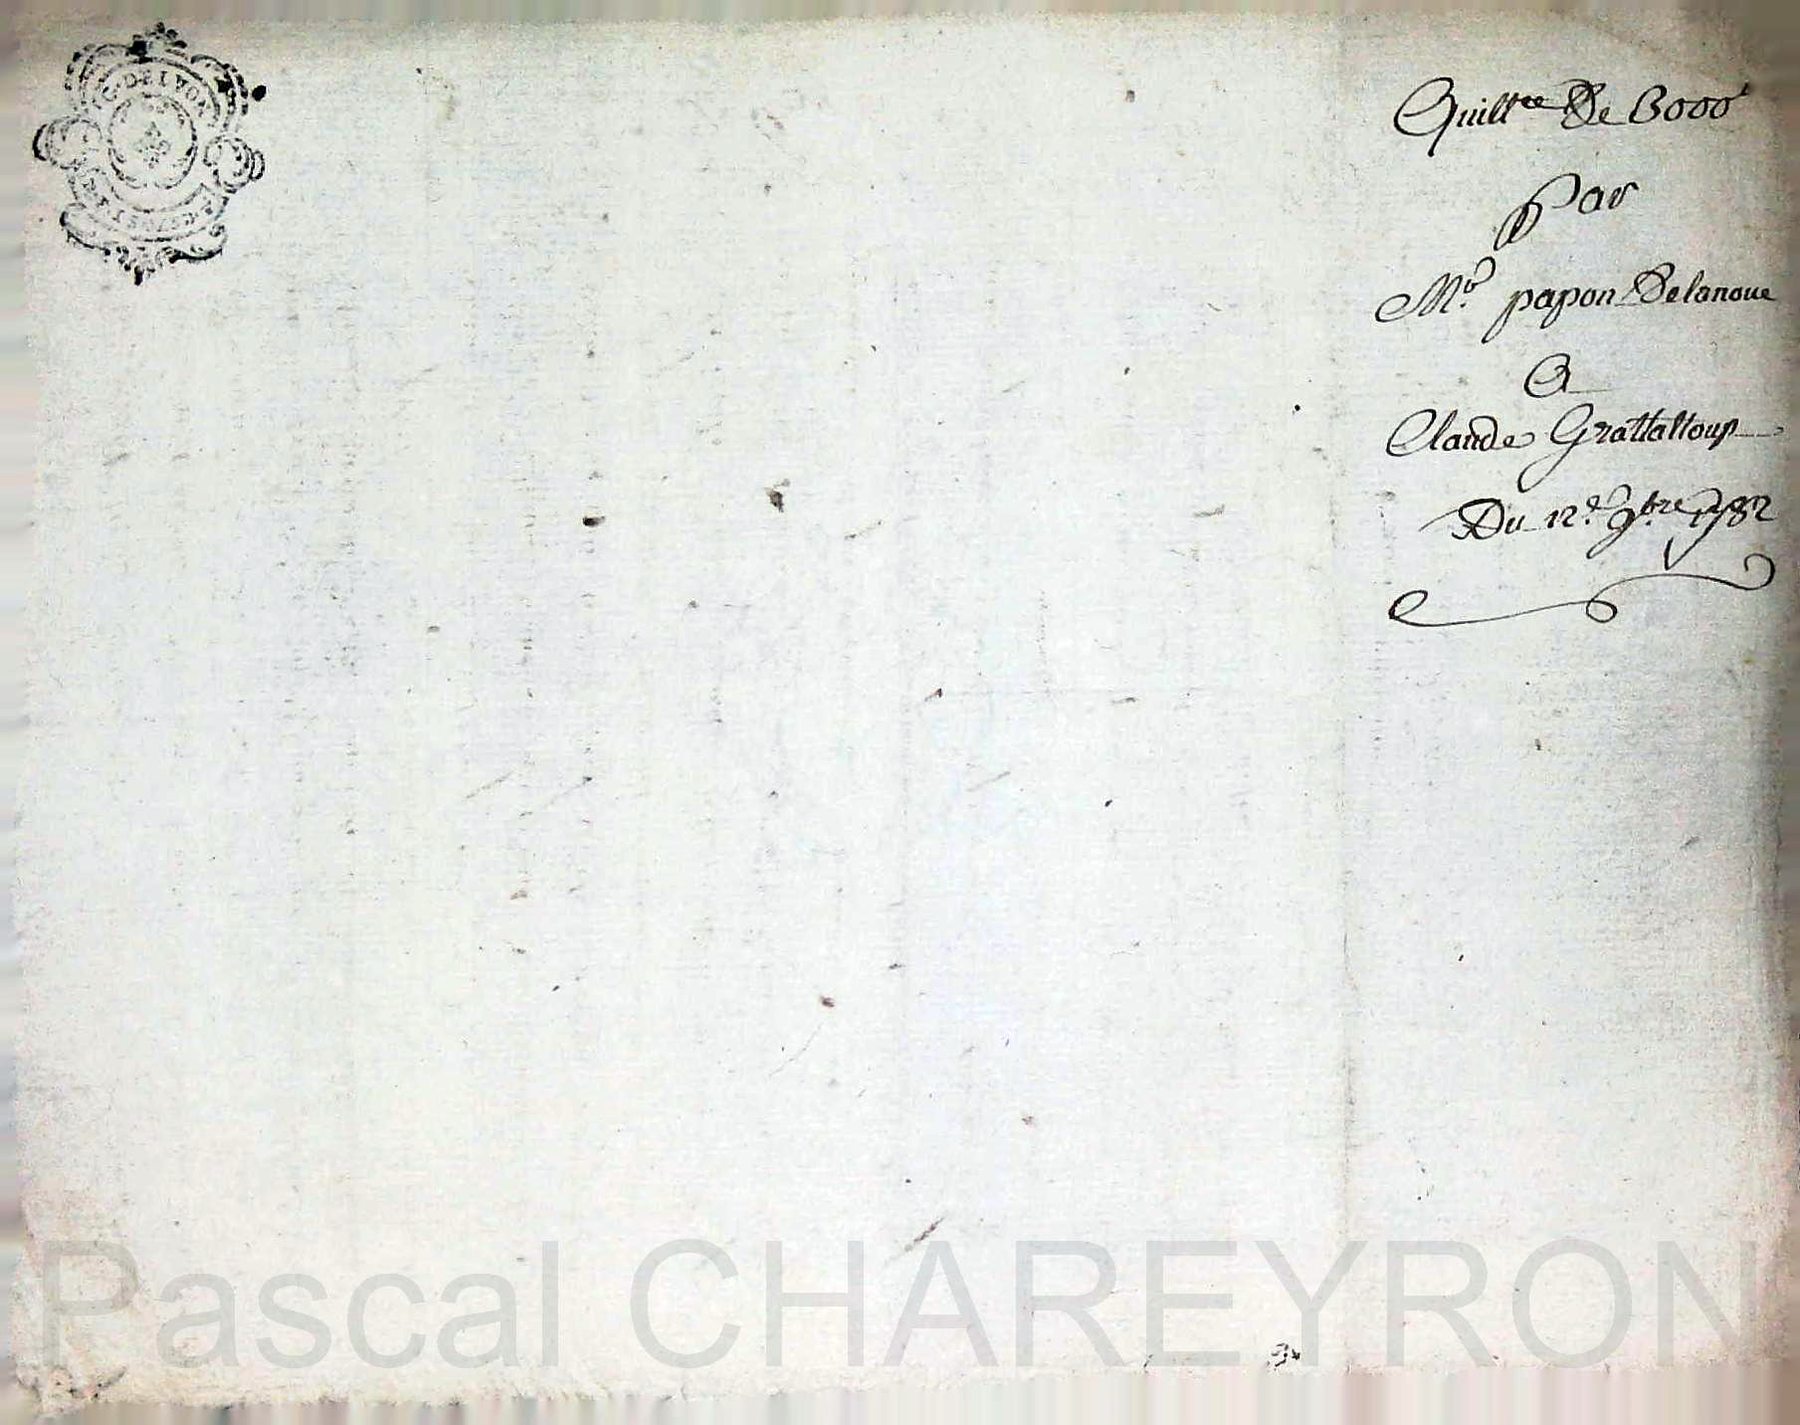 G. DE LYON
Quittce De 3000l
Par
Mr. papon Delanoue
A
Claude Grattaloup
Du 12e. 9bre. 1782
Pascal CHAREYRON